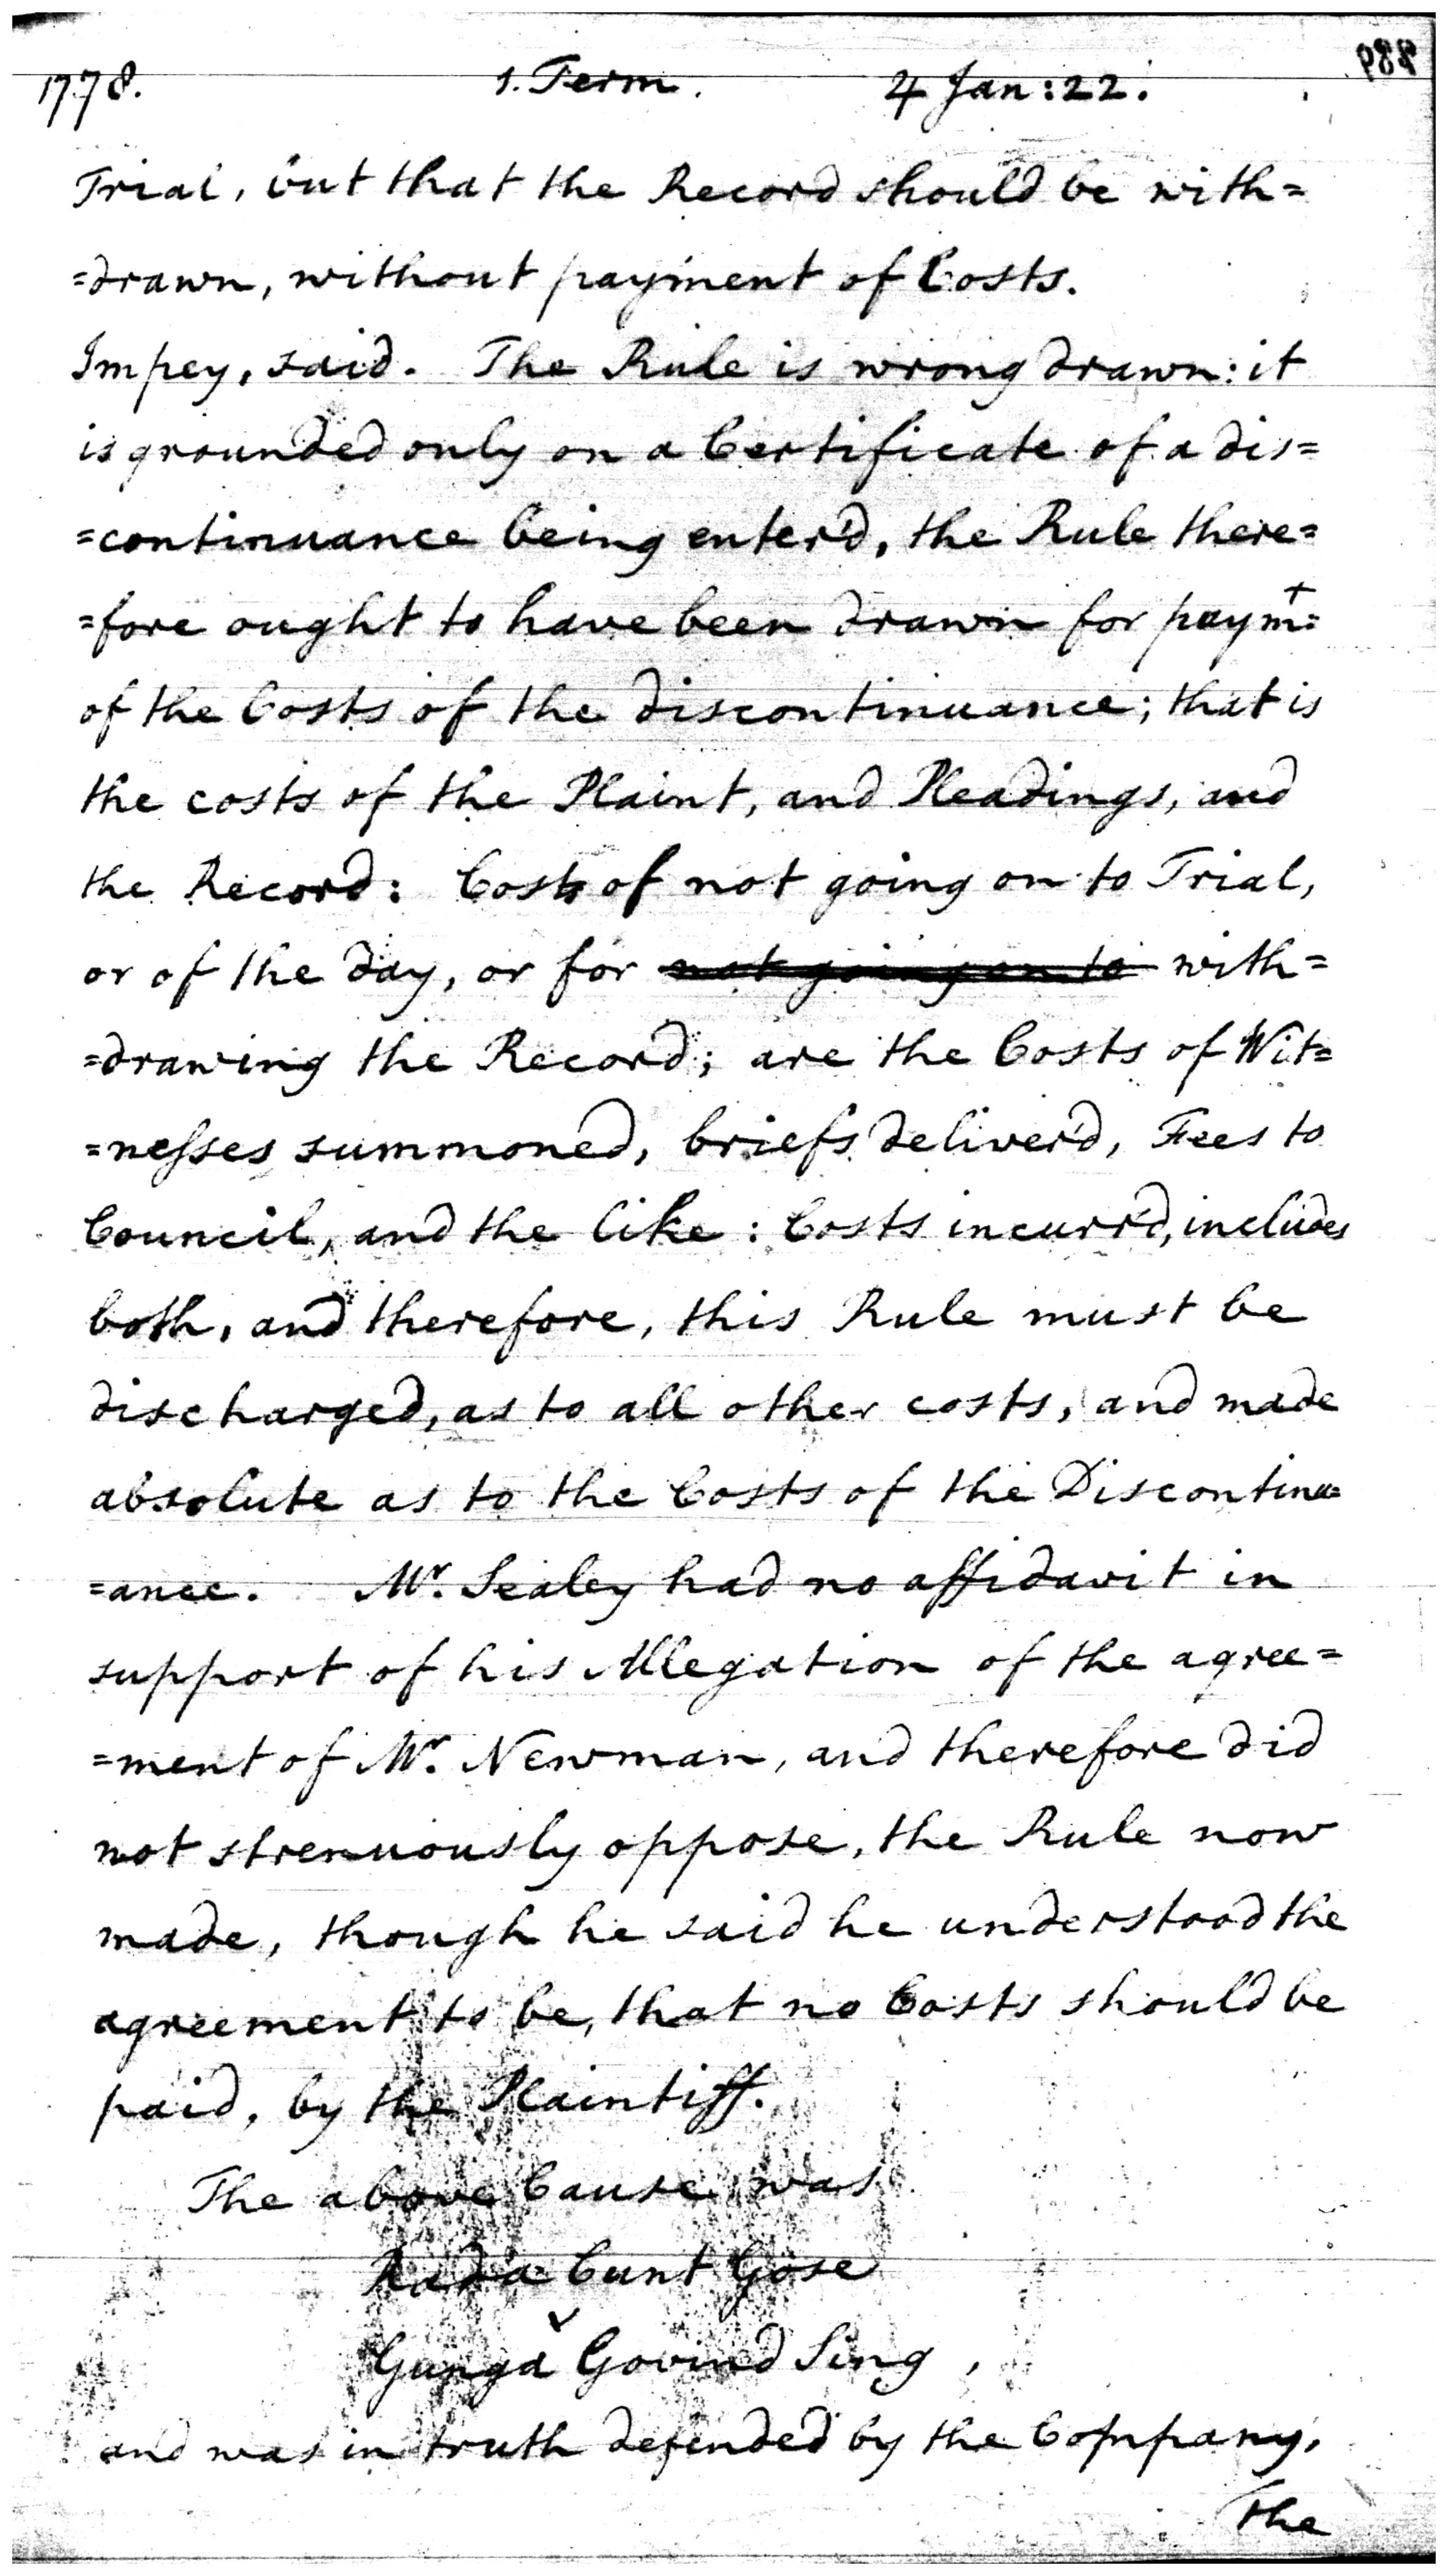 1778. 1. Term. 4 Jan: 22.
Trial, but that the Record should be with=
=drawn, without payment of Costs.
Impey, said. The Rule is wrong drawn: it
is grounded only on a Certificate of a dis=
=continuance being enter'd, the Rule there=
=fore ought to have been drawn for paymt=
of the Costs of the discontinuance; that is
the costs of the Plaint, and Pleadings, and
the Record: Costs of not going on to Trial,
or of the day, or for not going on to with=
=drawing the Record; are the Costs of Wit=
=nesses summoned, briefs deliver'd, Fees to
Council, and the like: Costs incurr'd, includes
both, and therefore, this Rule must be
discharged, as to all other costs, and made
absolute as to the Costs of the Discontinu=
=ance. Mr. Sealey had no affidavit in
support of his Allegation of the agree=
=ment of Mr. Newman, and therefore did
not strenuously oppose, the Rule now
made, though he said he understood the
agreement to be, that no Costs should be
paid, by the Plaintiff.
The above Cause was
Rada Cunt Gose
v
Gunga Govind Sing,
and was in truth defended by the Company,
The